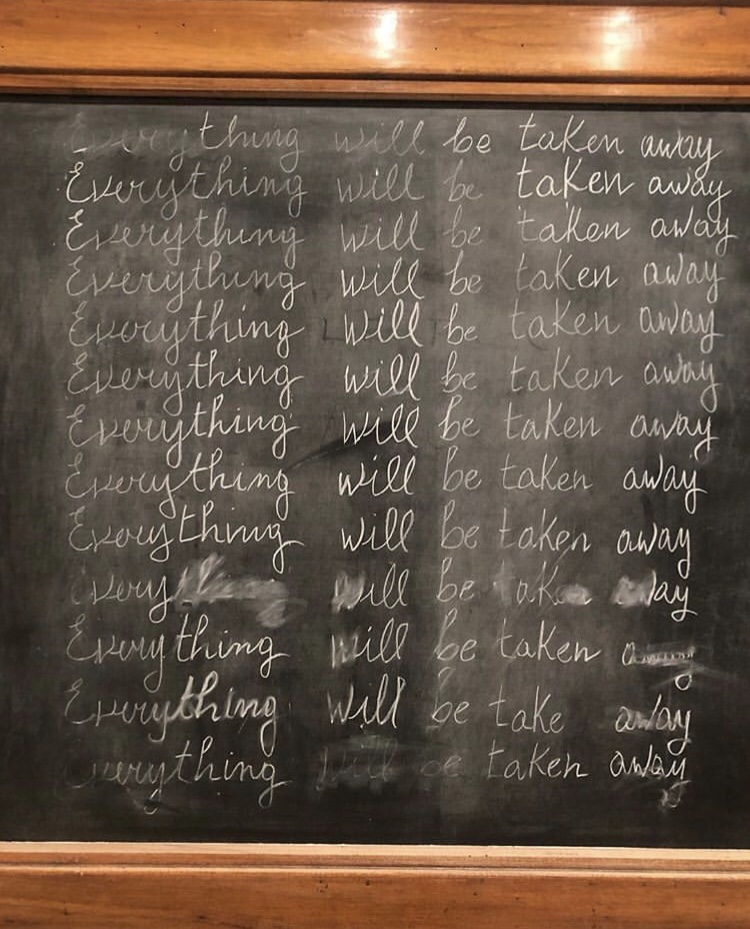 Everything will be taken away
Everything will be taken away
Everything will be taken away
Everything will be taken away
Everything will be taken away
Everything will be taken away
Everything will be taken away
Everything will be taken away
Everything will be taken away
will be away
Everything will be taken away
Everything will be take away
Everything will be taken away